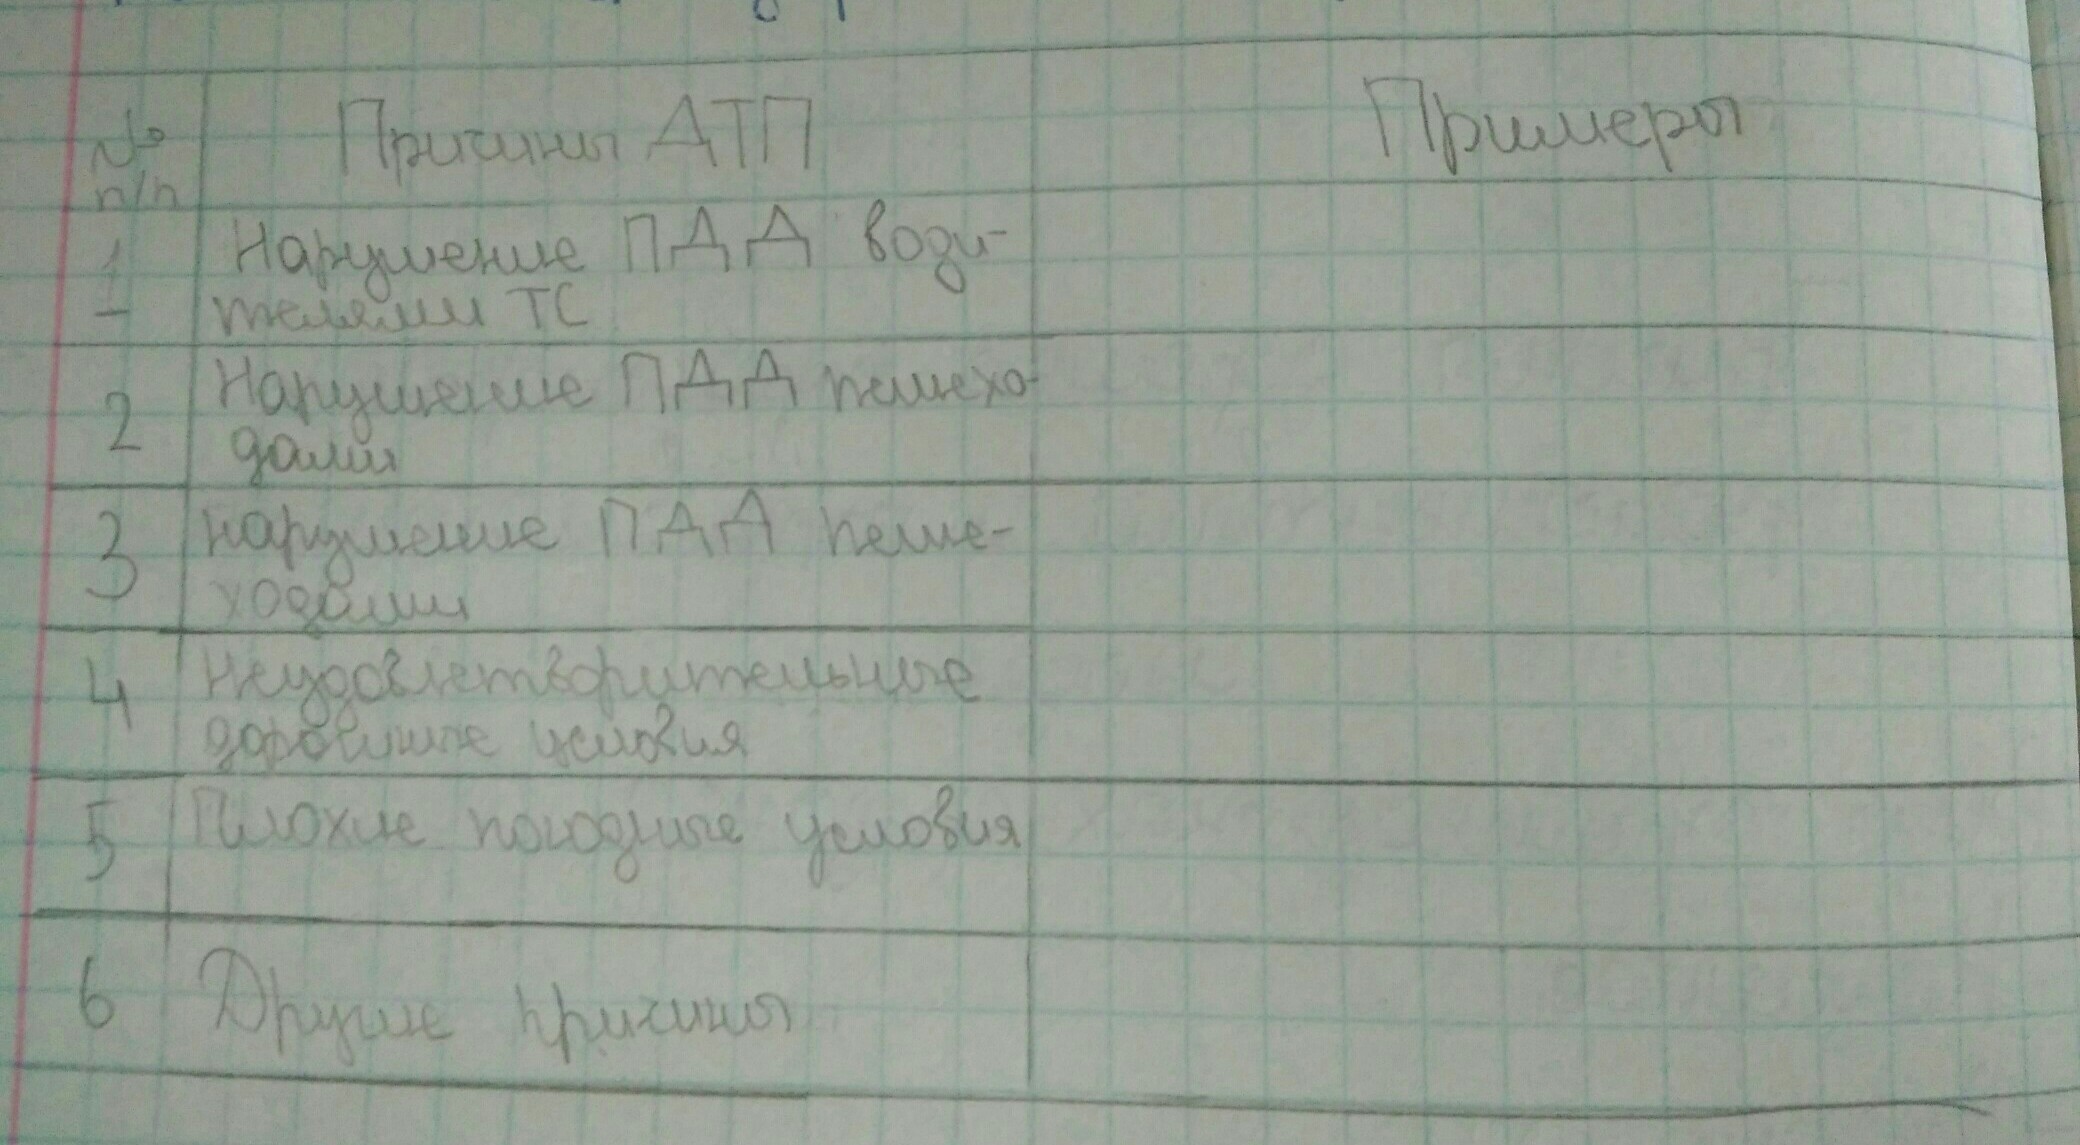 № п/п Причины ДТП Примеры
1 Нарушение ПДД води-
телями ТС
2 Нарушение ПДД пешехо-
дами
3 нарушение ПДД пеше-
ходами
4 Неудовлетворительные
дорожные условия
5 Плохие погодные условия
6 Другие причины